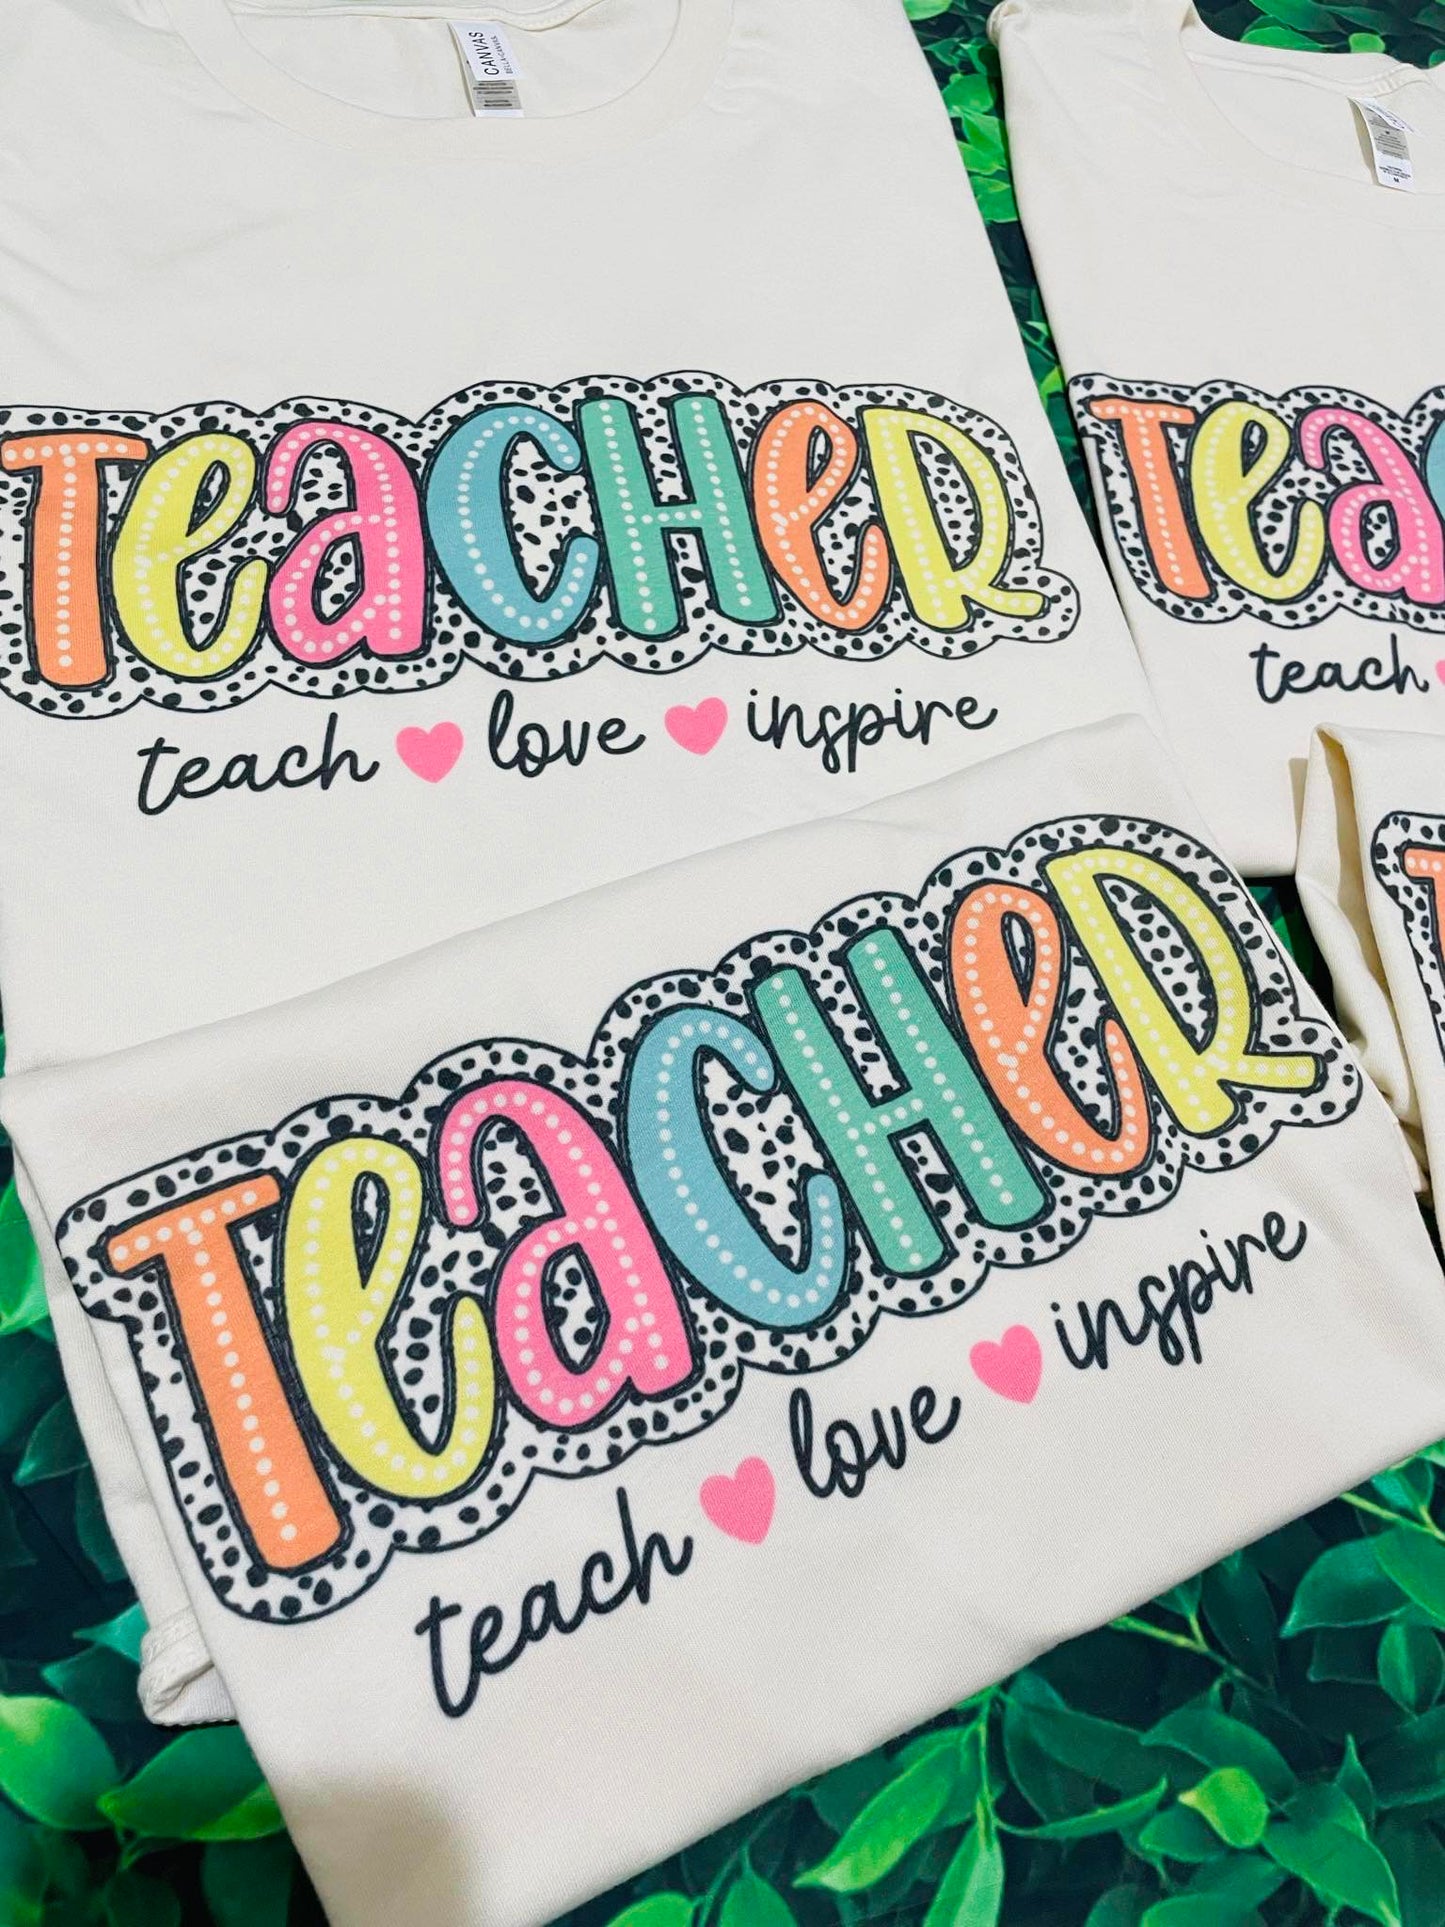 CANVAS
BELLA+CANVAS
M
TEACHER
teach love inspire
TEA
teach
TEACHER
teach love inspire
T